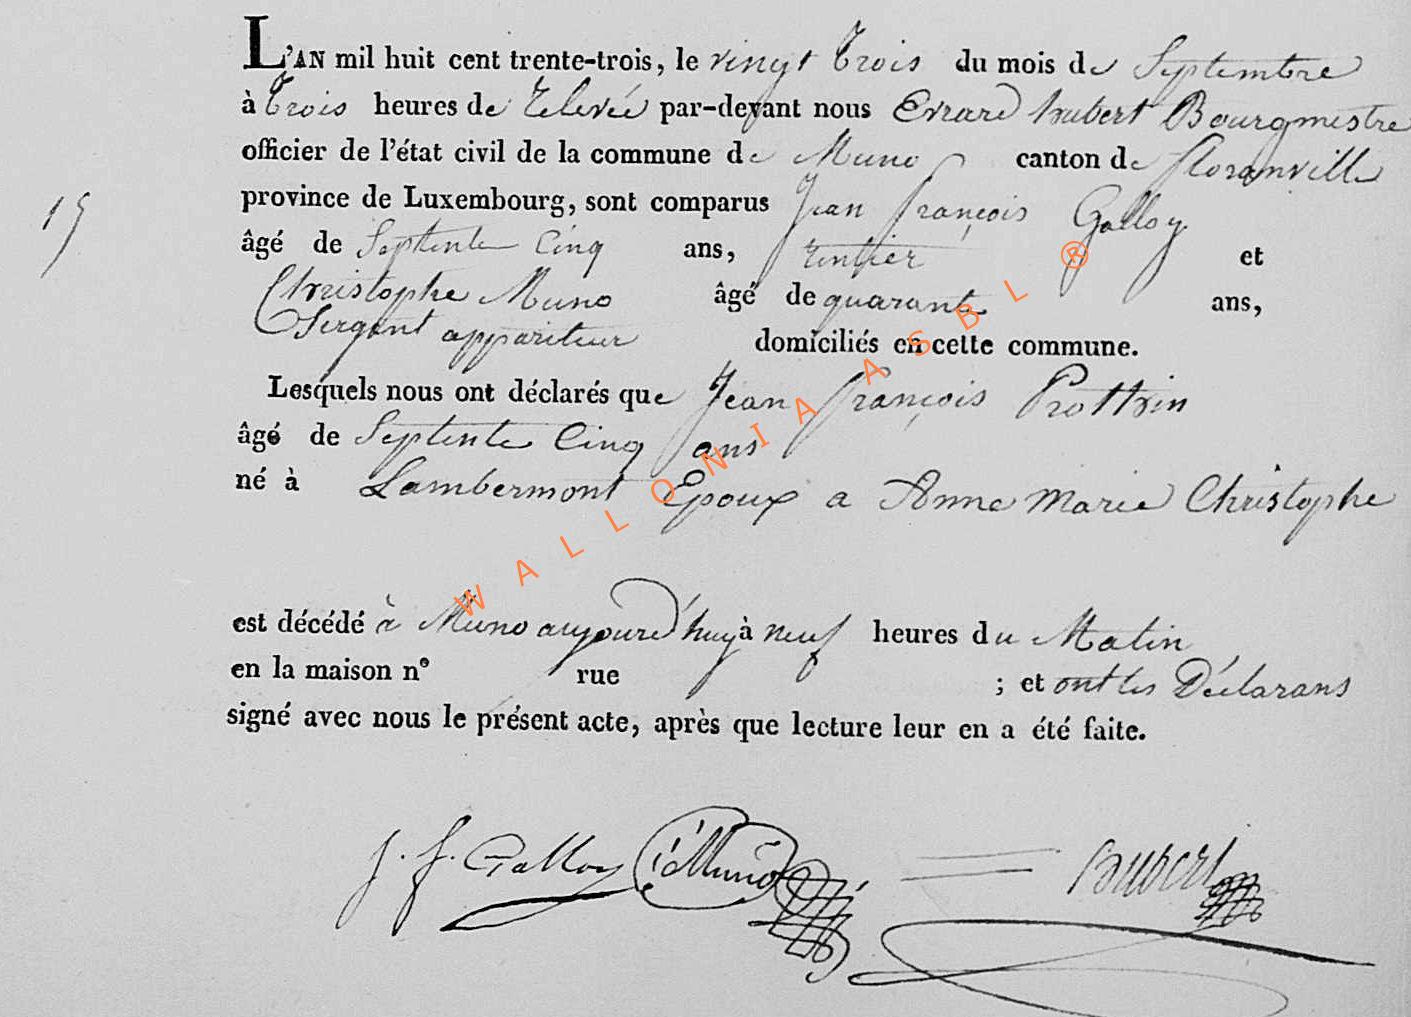 L'AN mil huit cent trente-trois, le vingt trois du mois de Septembre
à trois heures de relevée par-devant nous Evrard hubert Bourgmestre
officier de l'état civil de la commune de Muno canton de floranville
province de Luxembourg, sont comparus Jean françois Galloy
15
âgé de Septente Cinq ans, rentier et
Christophe Muno âgé de quarante ans,
Sergent appariteur domiciliés en cette commune.
Lesquels nous ont déclarés que Jean françois Prottin
âgé de Septente Cinq ans
né à Lambermont Epoux a Anne Marie Christophe
est décédé à Muno aujourd'huy à neuf heures du Matin
en la maison n° rue ; et ont les Déclarans
signé avec nous le présent acte, après que lecture leur en a été faite.
J. f. Galloy Muno hubert
WALLONIA ASBL ®